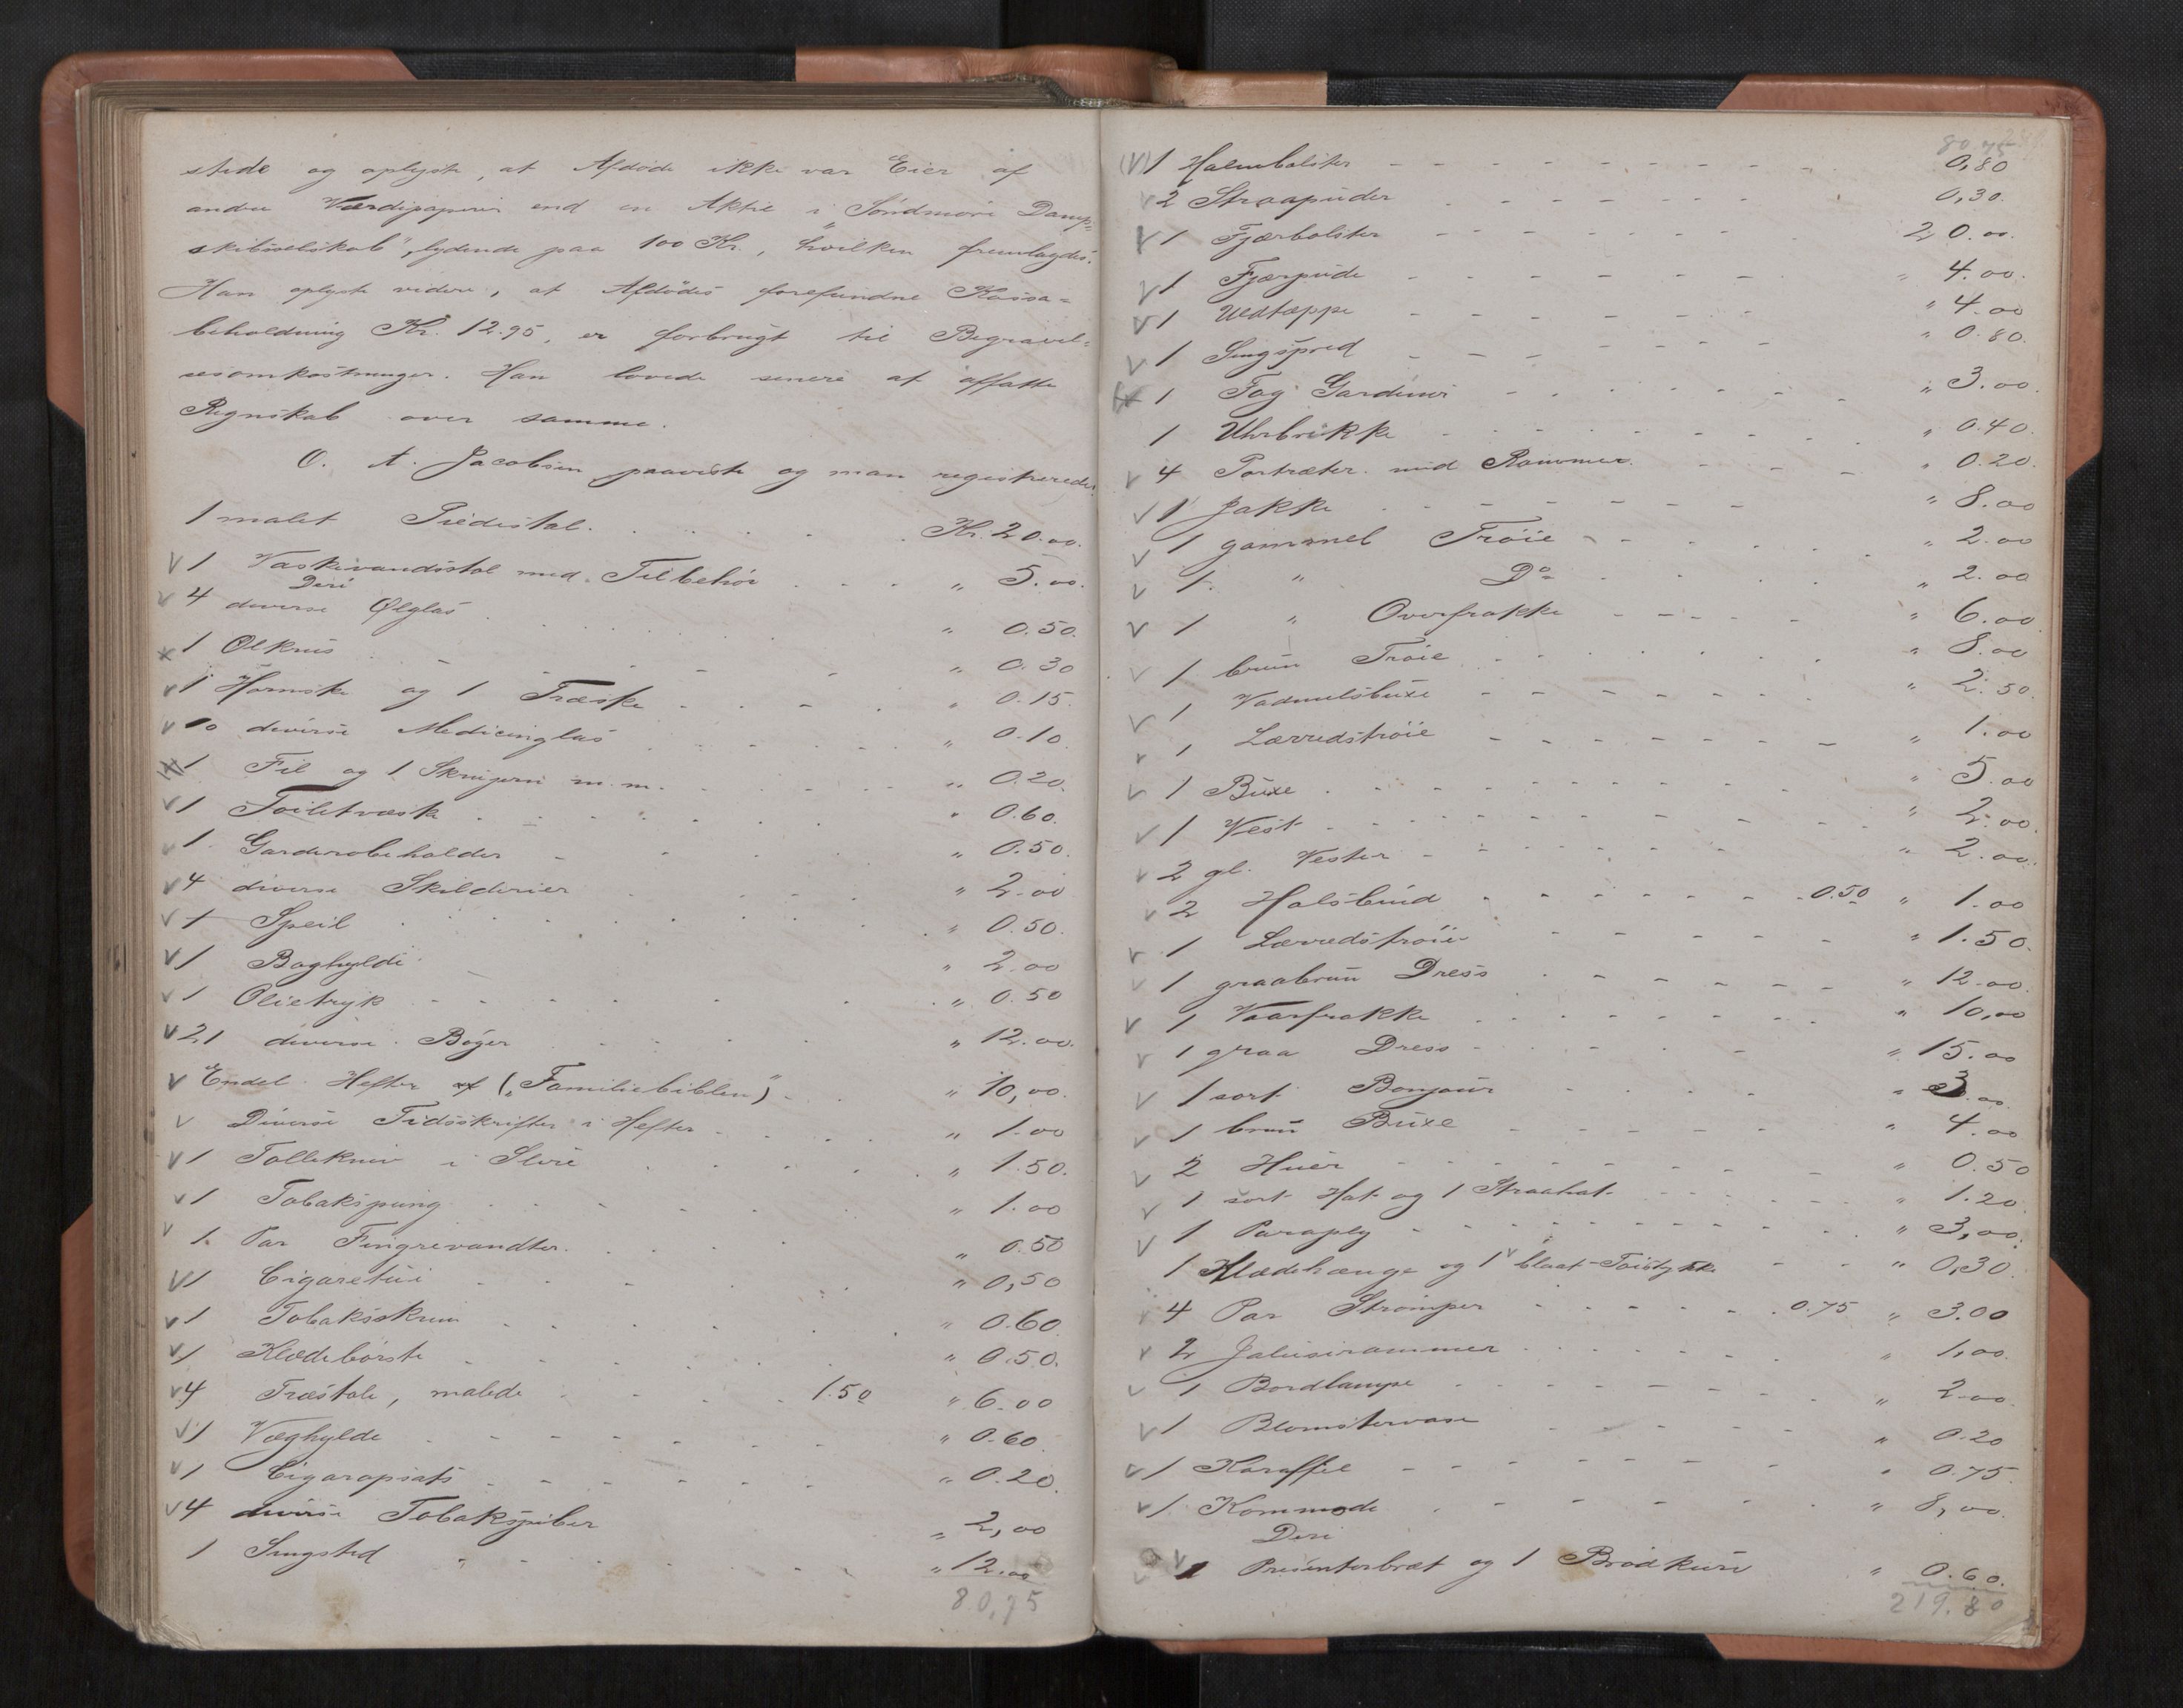 stede og oplyste, at Afdøde ikke var Eier af
andre Værdipapirer end en Aktie i „Søndmøre Damp-
skibsselskab", lydende paa 100 Kr., hvilken fremlagdes.
Han oplyste videre, at Afdødes forefundne Kassa-
beholdning Kr. 12.95, er forbrugt til Begravel-
sesomkostninger. Han lovede senere at affatte
Regnskab over samme.
O. A. Jacobsen paaviste og man registrerede:
1 malet Piedestal . . . . . Kr. 20.00.
V 1 Vaskevandsstol med Tilbehør . . . „ 5.00.
V 4 diverse Ølglas . . . „ 0.50.
1 Ølkrus - - - „ 0.30
V 1 Hornske og 1 Træske - - - „ 0.15.
V 10 diverse Medicinglas . . . „ 0.10.
1 Fil og 1 Skrujern m. m. . . . „ 0.20.
V 1 Toiletvæske . . . „ 0.60.
V 1 Garderobeholder - - „ 0.50.
V 4 diverse Skilderier . . . „ 2.00
V 1 Speil . . . „ 0.50.
V 1 Boghylde - „ 2.00
V 1 Olietryk - - - „ 0.50
V 21 diverse Bøger . . . „ 12.00.
V Endel Hefter af („Familiebiblen") - . . „ 10,00.
V Diverse Tidsskrifter i Hefter - . . „ 1.00
V 1 Tollekniv i Slire . . . „ 1.50.
V 1 Tobakspung . . . „ 1.00
V 1 Par Fingrevandter. . . . „ 0.50
V 1 Cigaretui - - - „ 0,50
V 1 Tobaksskrin . . . „ 0.60.
V 1 Klædebørste - - - „ 0.50.
V 4 Træstole, malede - - - 1.50 „ 6.00
V 1 Væghylde - - - „ 0.60.
V 1 Cigaropsats - - - „ 0.20.
V 4 diverse Tobakspiber „ 2,00
1 Sengsted - - - „ 12.00
80,75
80,75
(V) 1 Halmbolster - - - 0,80
V 2 Straapuder - - - 0,30.
V 1 Fjærbolster - - - 20.00.
V 1 Fjærpude - - - „ 4.00.
V 1 Uldtæppe - - - „ 4.00
V 1 Sengspred - - - „ 0.80.
1 Fag Gardiner - - - „ 3.00
1 Uhrbrikke - - - „ 0.40.
V 4 Portræter med Rammer. - - - „ 0.20.
V 1 Jakke - - - „ 8.00
V 1 gammel Trøie - - - „ 2.00
V 1. „ Do - - - „ 2.00
V 1 „ Overfrakke - - - „ 6.00
V 1 brun Trøie - - - „ 8.00
V 1 Vadmelsbuxe - - - „ 2.50.
V 1 Lærredstrøie - - - „ 1.00
V 1 Buxe - - - „ 5.00
V 1 Vest - - - „ 2.00.
V 2 gl. Vester - - - „ 2.00.
V 2 Halsbind - - - 0.50 „ 1.00
V 1 Lærredstrøie - - - „ 1.50.
V 1 graabrun Dress - - - „ 12.00.
V 1 Vaarfrakke - - - „ 10,00
V 1 graa Dress - - - „ 15.00
V 1 sort Bonjour - - - „ 3.00
V 1 brun Buxe - - - „ 4.00
V 2 Huer - - - „ 0.50
V 1 sort Hat og 1 Straahat - - - „ 1.20.
V 1 Paraply - - - „ 3,00.
1 Klædehænge og 1 blaat Tøistykke - - „ 0,30.
4 Par Strømper - - - 0.75 „ 3.00
V 2 Jalusirammer - - - „ 1,00.
V 1 Bordlampe - - - „ 2.00.
V 1 Blomstervase - - - „ 0.20
V 1 Karaffel - - - „ 0.75.
V 1 Kommode - - - „ 8,00.
V 1 Presenterbræt og 1 Brødkurv „ 0.60.
219,80